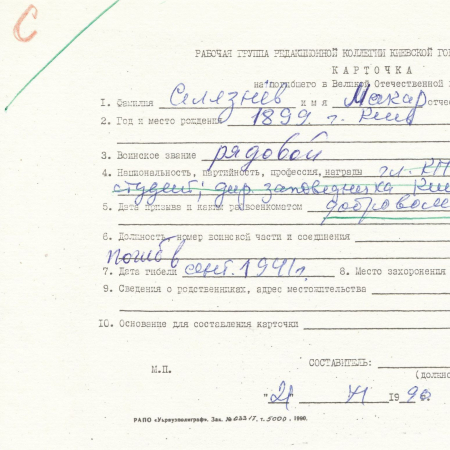 С
РАБОЧАЯ ГРУППА РЕДАКЦИОННОЙ КОЛЛЕГИИ КИЕВСКОЙ ГОР
КАРТОЧКА
на погибшего в Великой Отечественной
1. Фамилия Селязнёв имя Макар отчес
2. Год и место рождения 1899 г. Киев
3. Воинское звание рядовой
4. Национальность, партийность, профессия, награды чл. КП
студент; дир. заповедника Кие
5. Дата призыва и каким райвоенкоматом доброволь
6. Должность, номер воинской части и соединения
погиб в
7. Дата гибели сент. 1941 г. 8. Место захоронения
9. Сведения о родственниках, адрес местожительства
10. Основание для составления карточки
М.П. СОСТАВИТЕЛЬ:
(должно
"21" VI 1990.
РАПО «Укрвузполиграф». Зак. № 0331 Г, т. 5000. 1990.